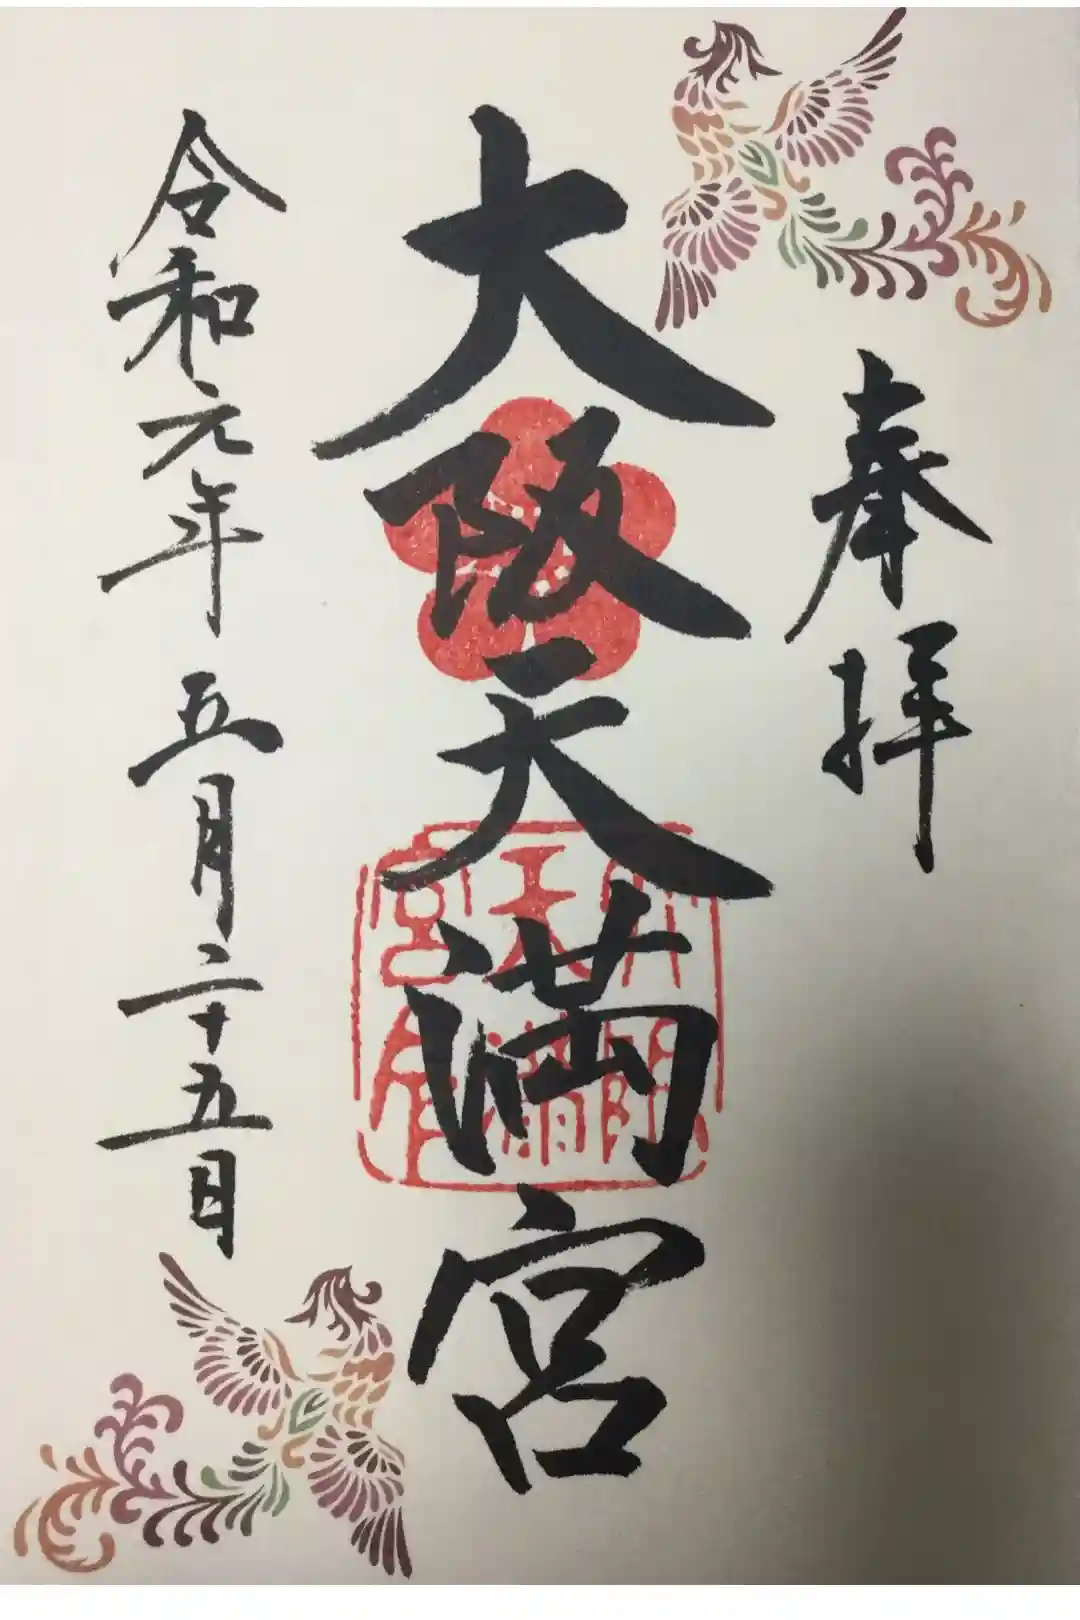 奉拝
大阪天満宮
令和元年 五月二十五日